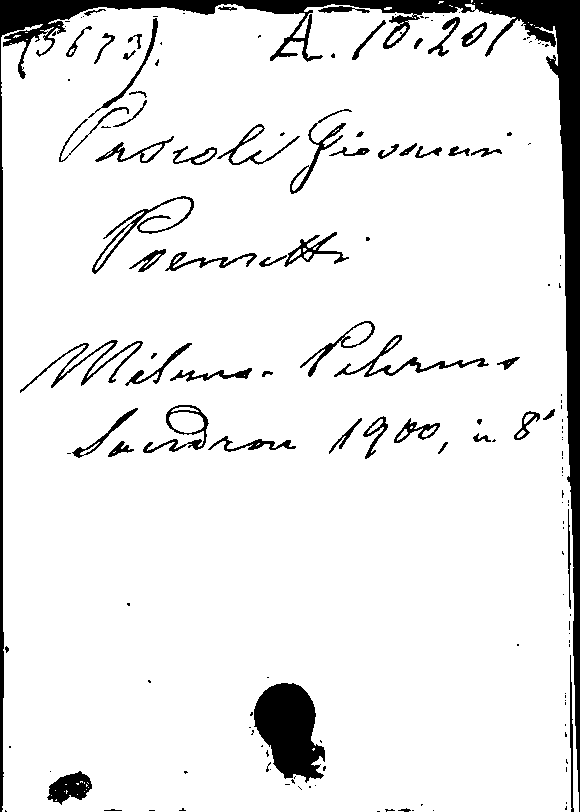 (5673). A. 10.201
Pascoli Giovanni
Poemetti
Milano - Palermo
Sandron 1900, in 8°